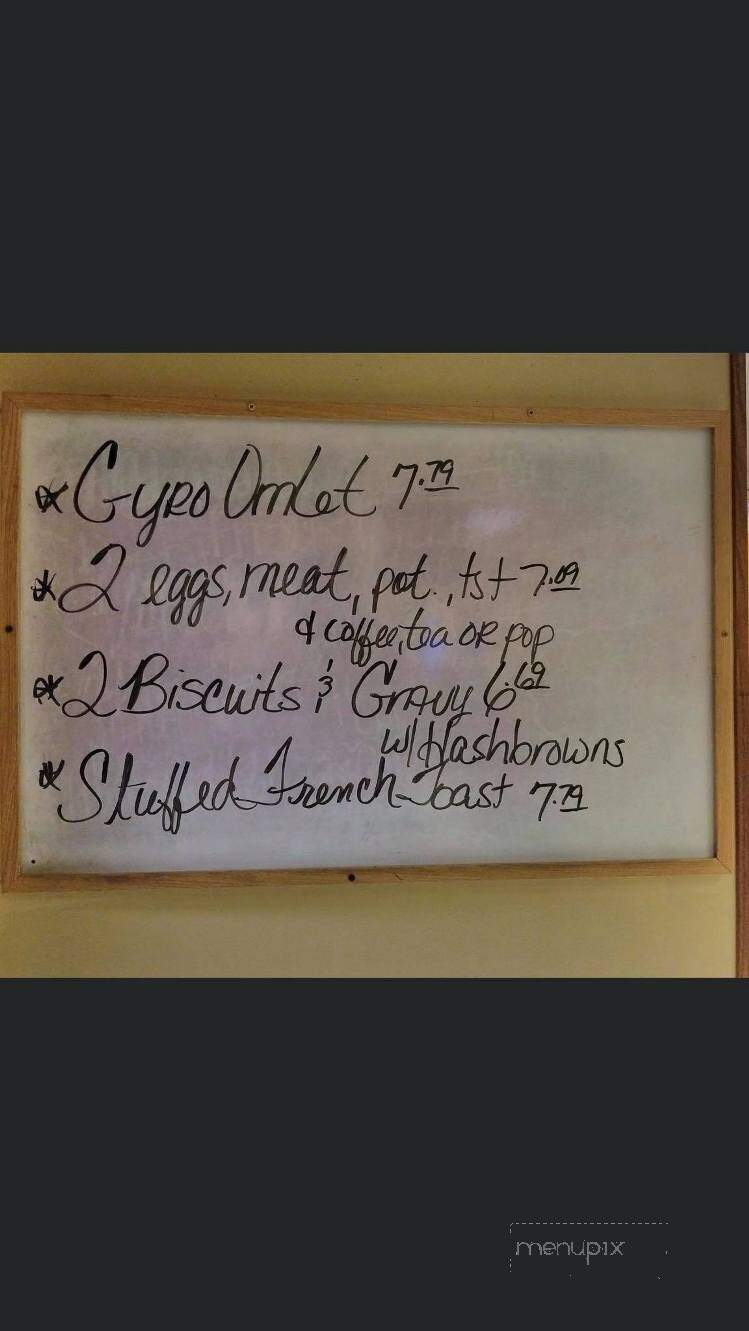 * Gyro Omlet 7.79
* 2 eggs, meat, pot., tst 7.09
& coffee, tea or pop
* 2 Biscuits & Gravy 6.69
w/ Hashbrowns
* Stuffed French Toast 7.79
menupix